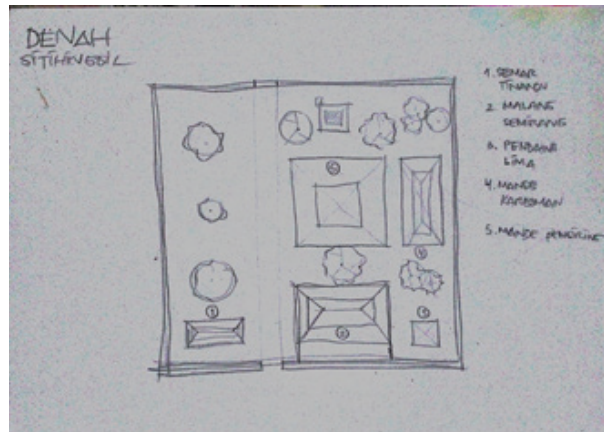 DENAH
SITIHINGGIL
1. SEMAR
TINANDU
2. MALANG
SEMIRANG
3. PENDAWA
LIMA
4. MANDE
KARESMAN
5. MANDE PENGIRING